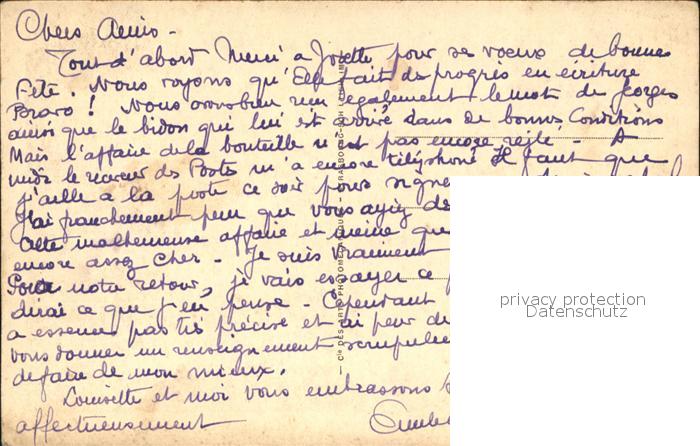 Chers Amis -
Tout d'abord Merci a Josette, pour se voeux de bonne
Fête. Nous voyons qu'Elle fait des progrès en écriture
Bravo ! Nous avons bien reçu également le mot de Georges
ainsi que le bidon qui lui est arrivé dans de bonnes Conditions
Mais l'affaire de la bouteille n'est pas encore reglé - A
midi le receveur des Postes m'a encore téléphoné Il faut que
j'aille a la poste ce soir pour signe
J'ai franchement peur que vous ayiez de
cette malheureuse affaire et même que
encore assez cher - Je suis vraiment
Pour notre retour, je vais essayer ce
dirai ce que j'en pense - Cependant
a essence pas très précise et j'ai peur de
vous donner un renseignement scrupule
de faire de mon mieux.
Louisette et moi vous embrassons
affectueusement
privacy protection
Datenschutz